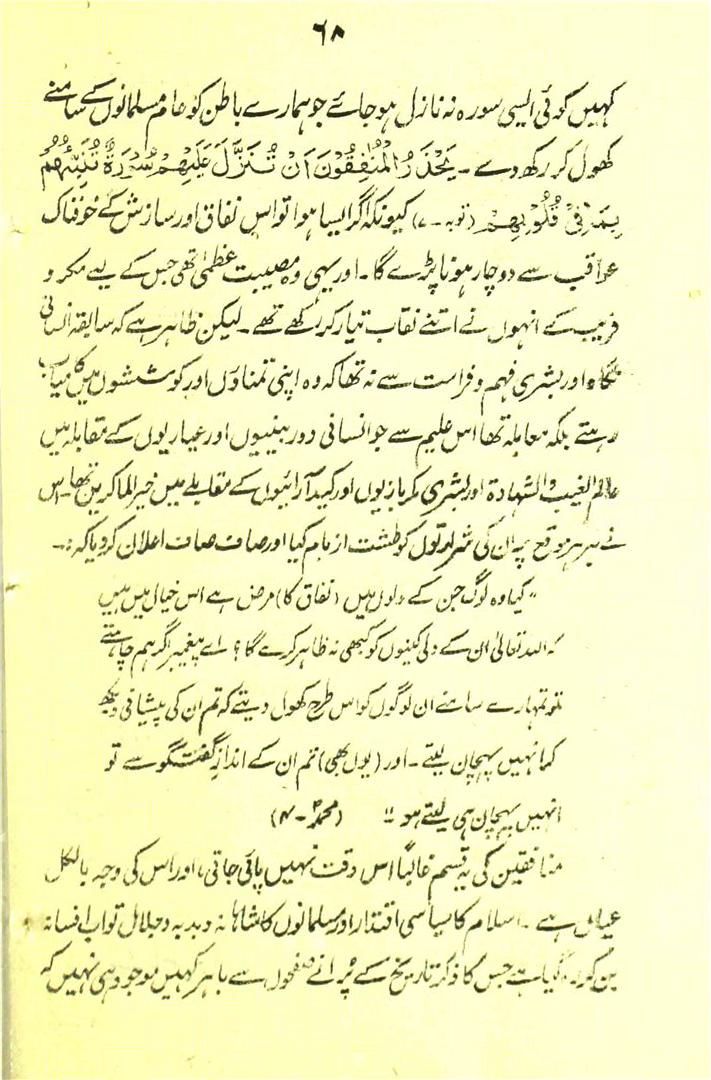 ۶۸
کہیں کوئی ایسی سورہ نہ نازل ہو جائے جو ہمارے باطن کو عام مسلمانوں کے سامنے
کھول کر رکھ دے ۔ یَحْذَرُ الْمُنٰفِقُوْنَ اَنْ تُنَزَّلَ عَلَیْهِمْ سُوْرَةٌ تُنَبِّئُهُمْ
بِمَا فِیْ قُلُوْبِهِمْ (توبہ ۔ ۷) کیونکہ اگر ایسا ہوا تو اس نفاق اور سازش کے خوفناک
عواقب سے دو چار ہونا پڑے گا ۔ اور یہی وہ مصیبت عظمٰی تھی جس کے لیے مکر و
فریب کے انہوں نے اتنے نقاب تیار کر رکھے تھے ۔ لیکن ظاہر ہے کہ سابقہ انسانی
نگاہ اور بشری فہم و فراست سے نہ تھا کہ وہ اپنی تمناؤں اور کوششوں میں کامیاب
رہتے بلکہ معاملہ تھا اس علیم سے جو انسانی دور بینیوں اور عیاریوں کے مقابلہ میں
عالم الغیب والشہادۃ اور بشری مکر بازیوں اور کید آرائیوں کے مقابلے میں خیر الماکرین تھا ۔ اس
نے ہر ہر موقع پہ ان کی شرارتوں کو طشت از بام کیا اور صاف صاف اعلان کر دیا کہ :۔
" کیا وہ لوگ جن کے دلوں میں (نفاق کا) مرض ہے اس خیال میں ہیں
کہ اللہ تعالیٰ ان کے دلی کینوں کو کبھی نہ ظاہر کرے گا ؟ اے پیغمبر اگر ہم چاہتے
تو تمہارے سامنے ان لوگوں کو اس طرح کھول دیتے کہ تم ان کی پیشانی دیکھ
کر انہیں پہچان لیتے ۔ اور (یوں بھی) تم ان کے انداز گفتگو سے تو
انہیں پہچان ہی لیتے ہو " (محمدؐ ۔ ۴)
منافقین کی یہ قسم غالباً اس وقت نہیں پائی جاتی ، اور اس کی وجہ بالکل
عیاں ہے ۔ اسلام کا سیاسی اقتدار اور مسلمانوں کا شاہانہ دبدبہ و جلال تو اب افسانہ
بن کر رہ گیا ہے جس کا ذکر تاریخ کے پرانے صفحوں سے باہر کہیں موجود ہی نہیں کہ